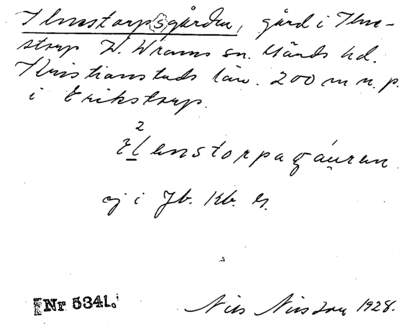 Ilnstorp[s]gården, gård i Iln-
storp V. Wrams sn. Gärds hd.
Kristianstads län. 200 m n. p.
i Erikstorp.
2
elenstorpagáuren
ej i Jb. Kb. 
Nr 5341. Nils Nilsson 1928.